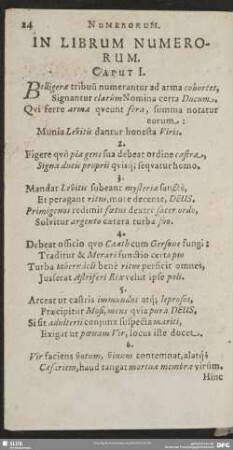 24 NUMERORUM.
IN LIBRUM NUMERO-
RUM.
CAPUT I.
Belligeræ tribuũ numerantur ad arma cohortes,
Signantur clarũm Nomina certa Ducum,
Qvi ferre arma qveunt fera, summa notatur
eorum:
Munia Levitis dantur honesta Viris.
2.
Figere qvò pia gens sua debeat ordine castra,
Signa ducũ proprii qvisq; seqvatur homo.
3.
Mandat Levitis subeant mysteria sanctè,
Et peragant ritus, more decente, DEUS.
Primogenos redimit fœtus dextrè sacer ordo,
Solvitur argento cætera turba suo.
4.
Debeat officio qvo Caath cum Gersone fungi:
Traditur & Merari functio certa pio
Turba tabernacli benè ritus perficit omnes,
Jusserat Astriferi Rex velut ipse poli.
5.
Arceat ut castris immundos atq; leprosos,
Præcipitur Mosi, mens qvia pura DEUS,
Si sit adulterii conjunx suspecta mariti,
Exigat ut pœnam Vir, locus iste docet.
6.
Vir faciens votum, vinum contemnat,
Cæsariem, haud tangat mortua membra virûm.
Hinc